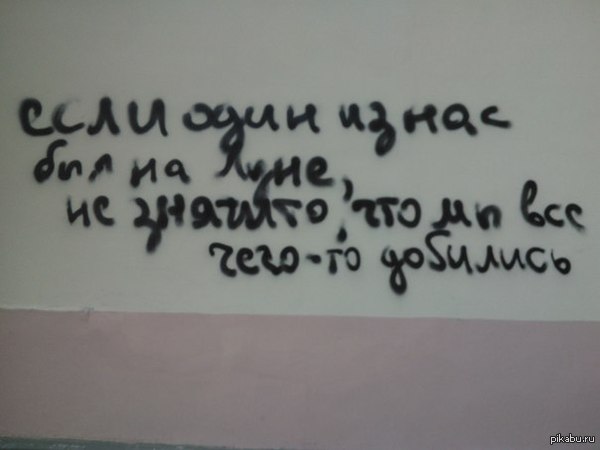 если один из нас
был на Луне,
не значит то, что мы все
чего-то добились
pikabu.ru